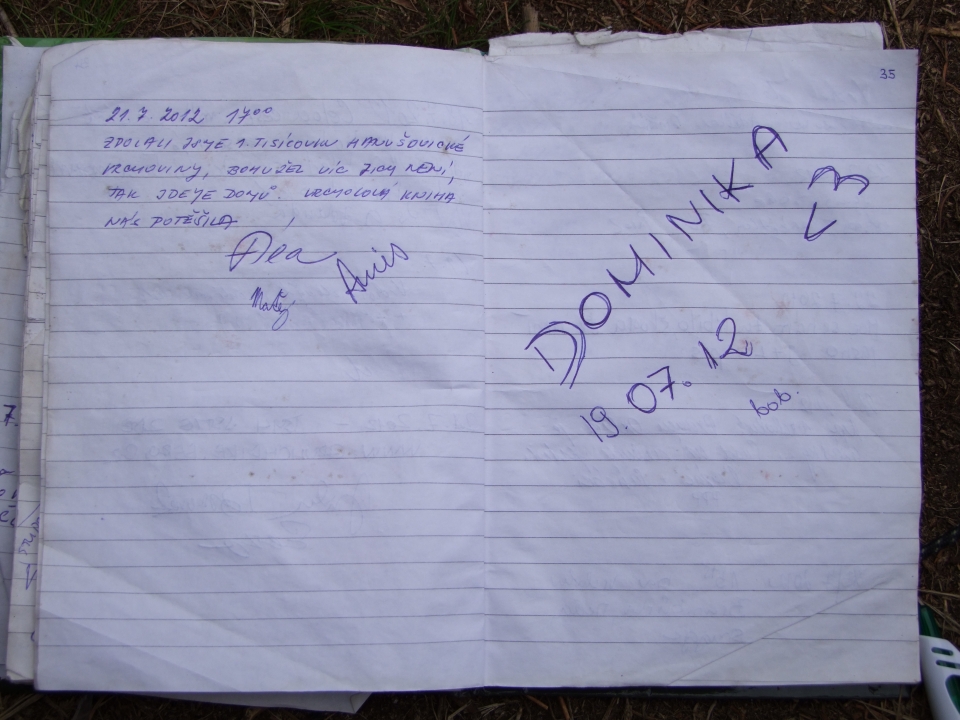 21.7.2012 17⁰⁰
ZDOLALI JSME 1. TISÍCOVKU HANUŠOVICKÉ
VRCHOVINY, BOHUŽEL VÍC JICH NENÍ,
TAK JDEME DOMŮ. VRCHOLOVÁ KNIHA
NÁS POTĚŠILA!
Matěj
35
DOMINIKA
<3
19.07.12
bob.